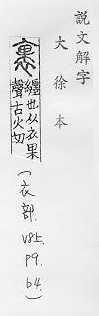 說文解字
大徐本
裹
纏也从衣果
聲古火切
(衣部.
V8上.
P9.
b4.)